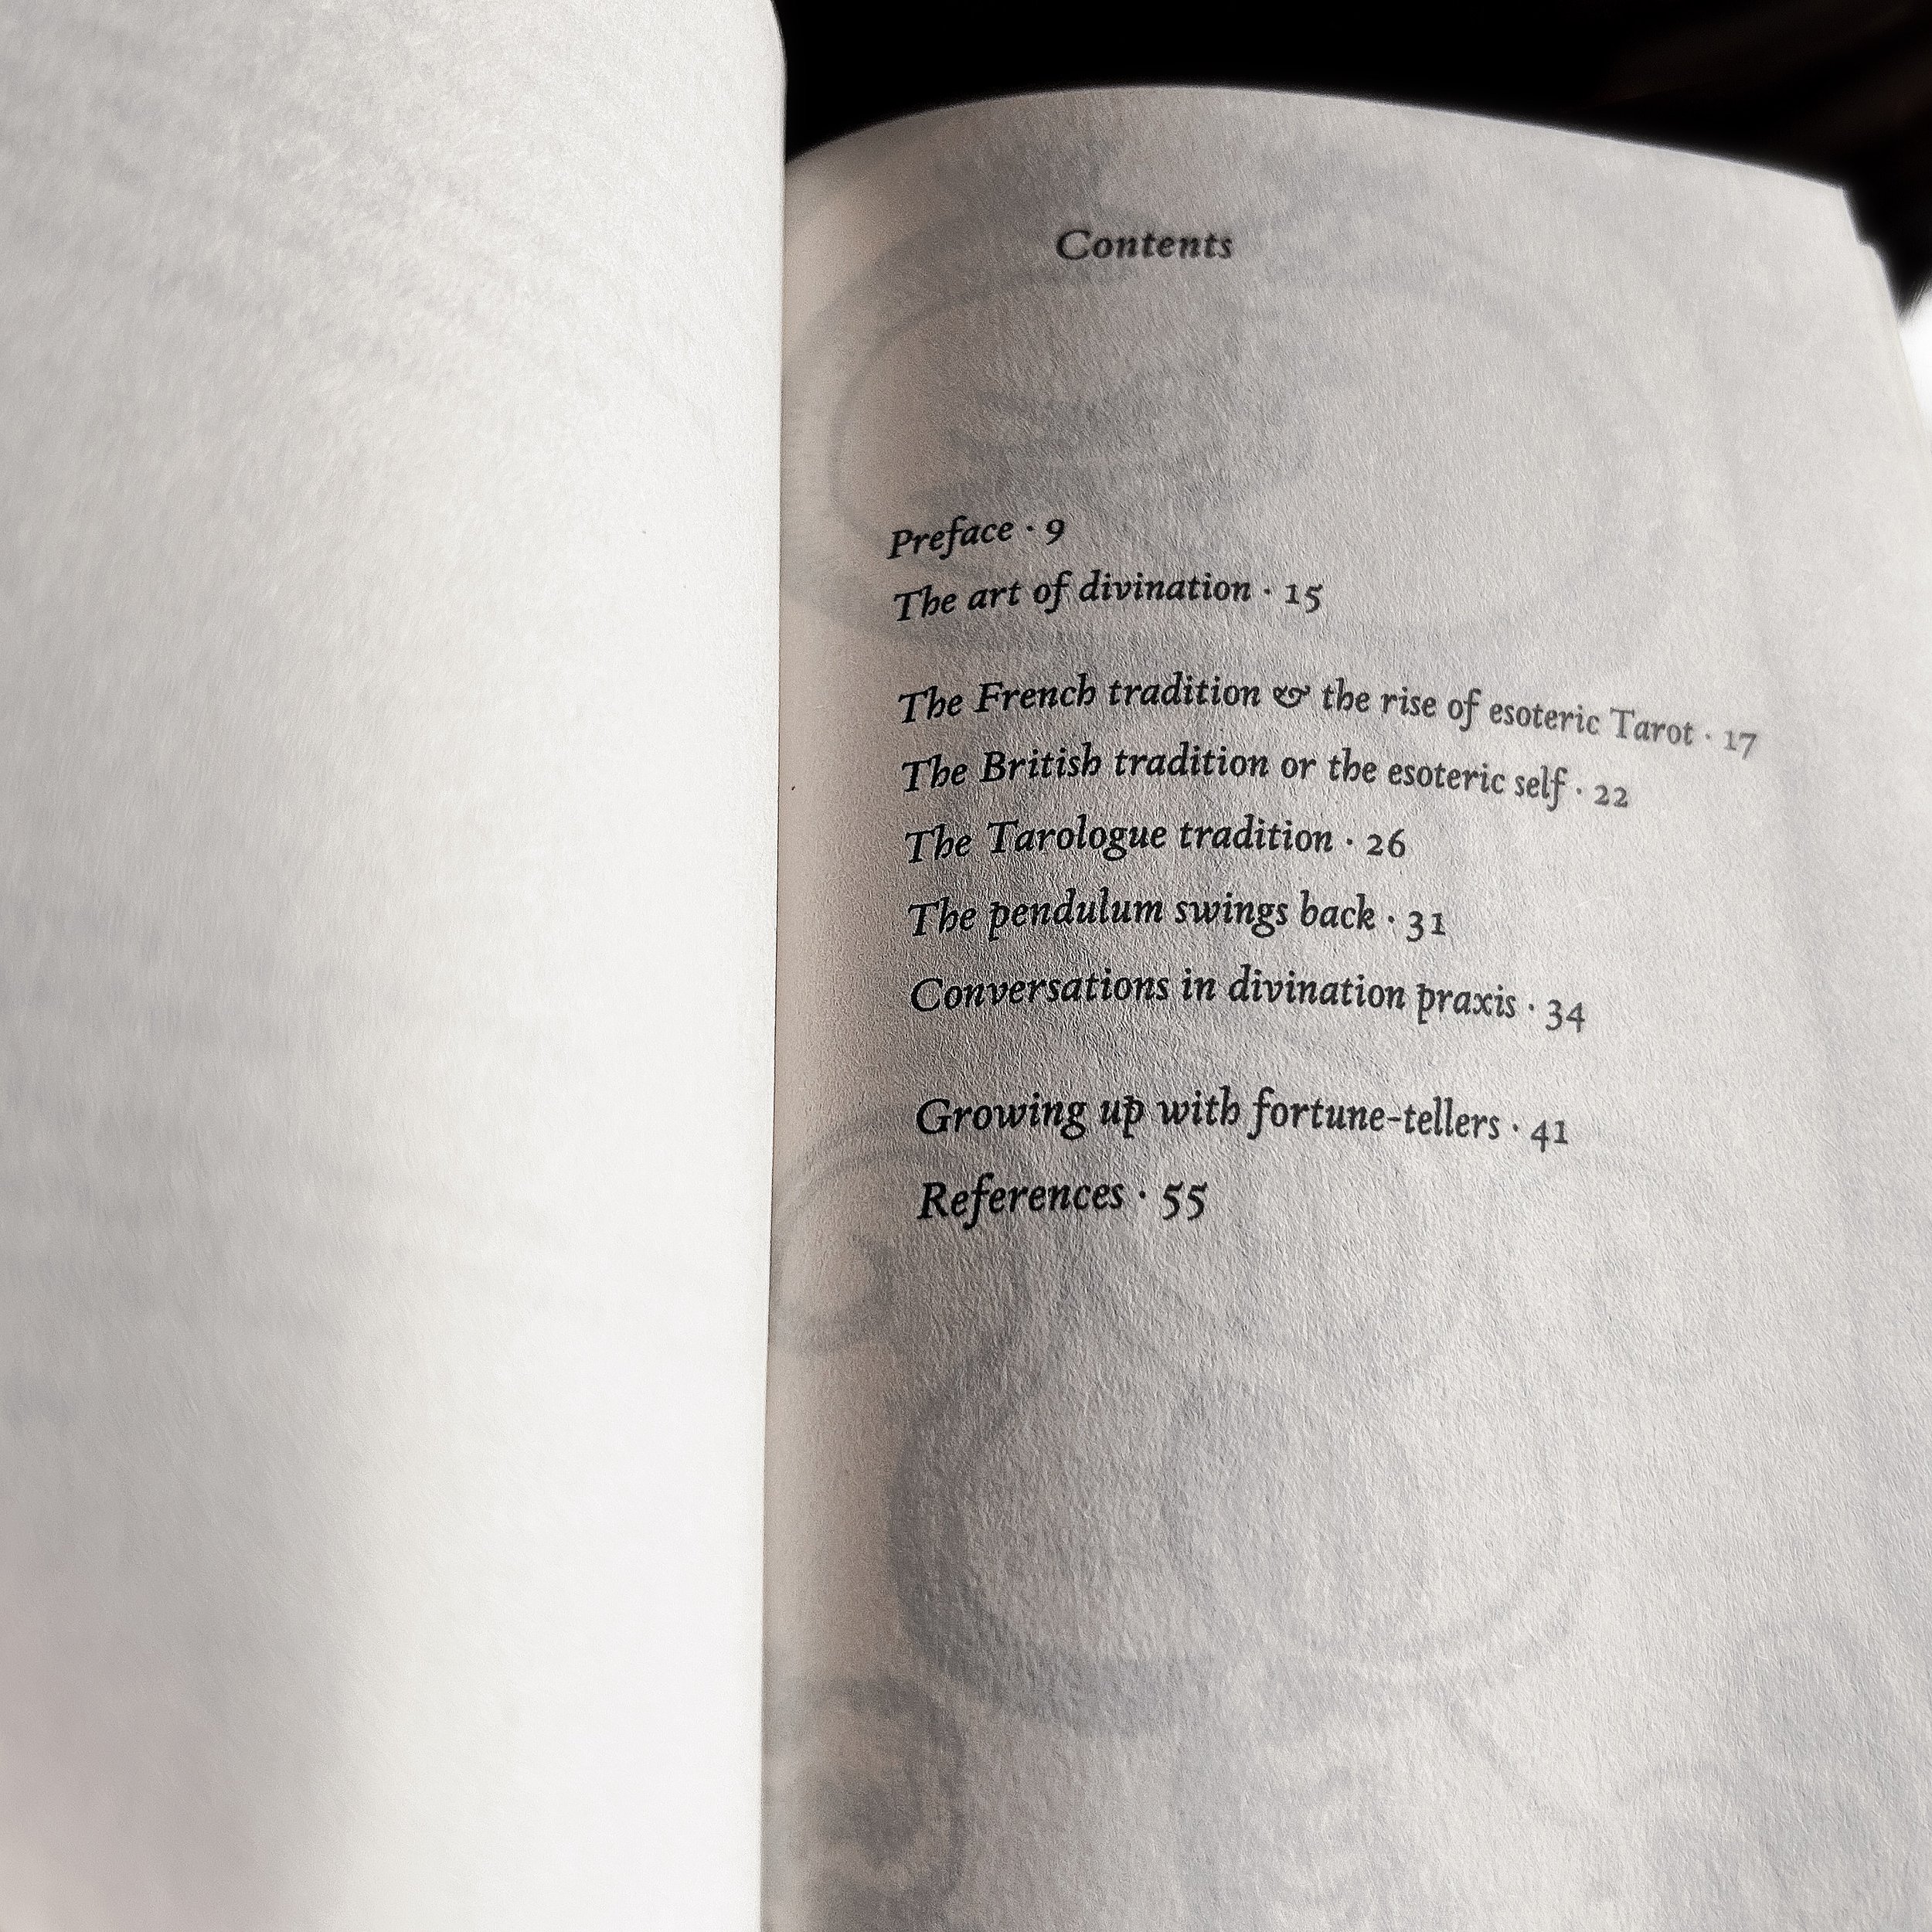 Contents
Preface · 9
The art of divination · 15
The French tradition & the rise of esoteric Tarot · 17
The British tradition or the esoteric self · 22
The Tarologue tradition · 26
The pendulum swings back · 31
Conversations in divination praxis · 34
Growing up with fortune-tellers · 41
References · 55